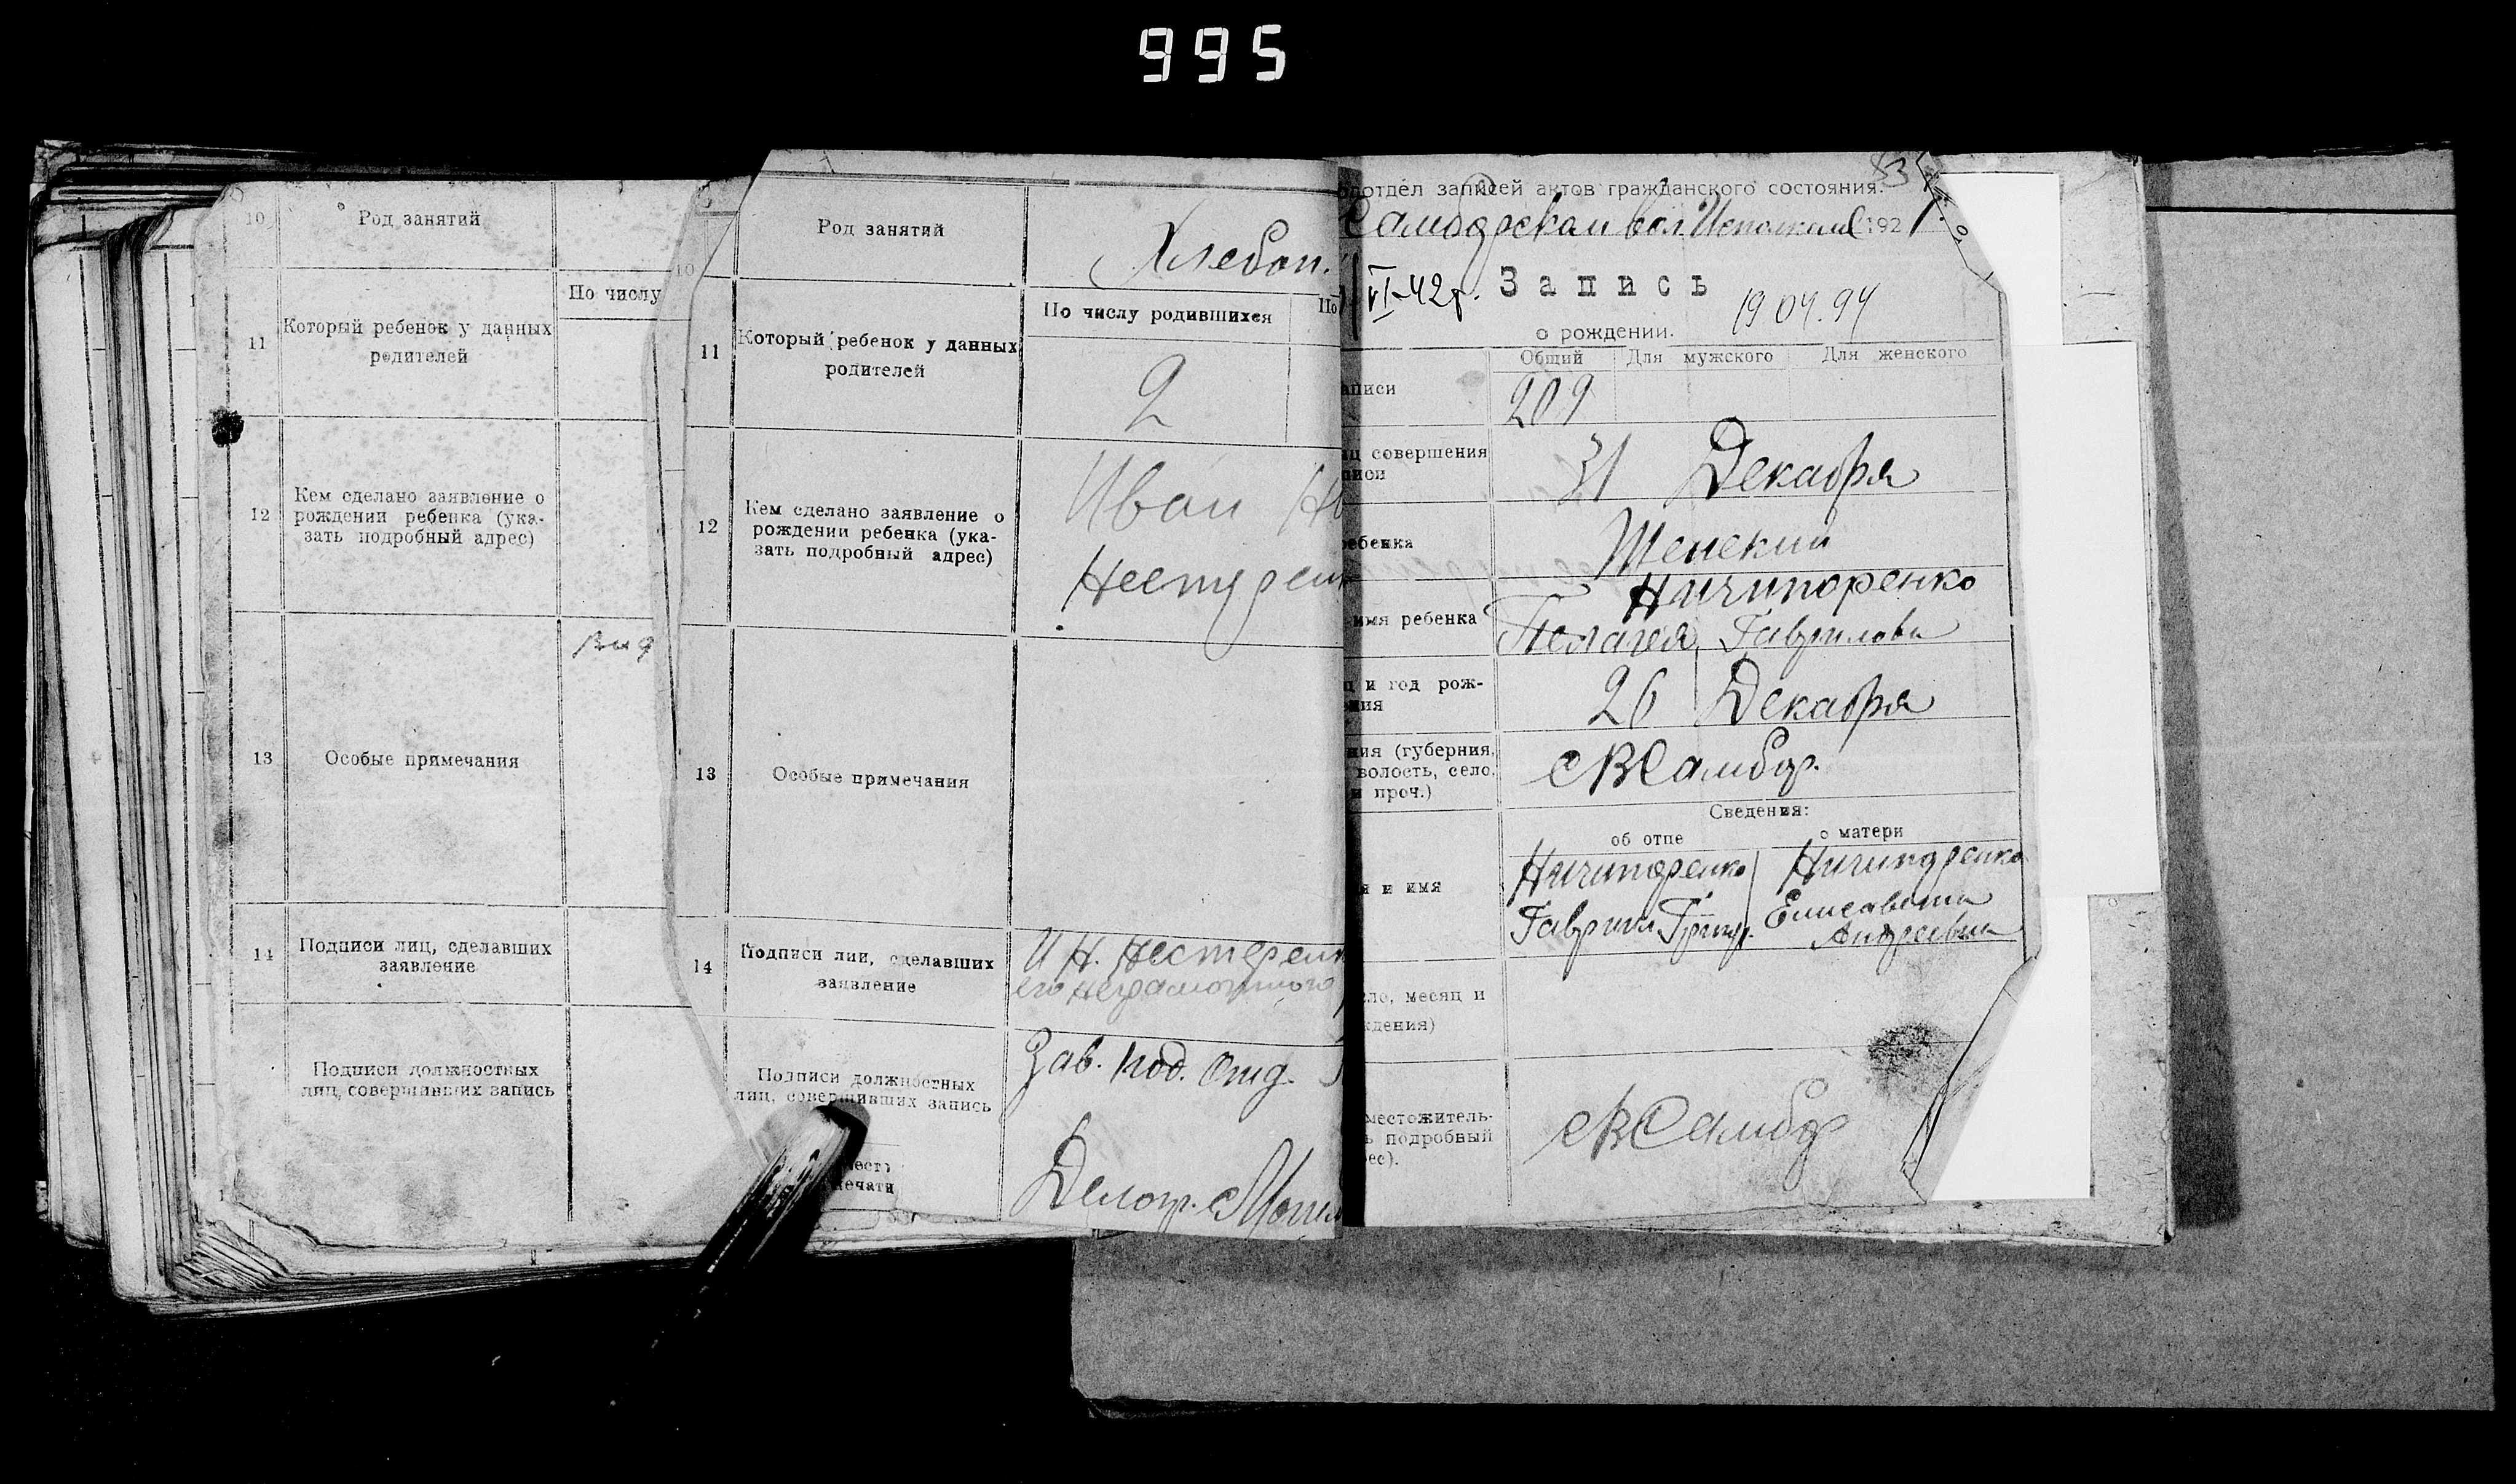 995
10
Род занятий
По числу
11
Который ребенок у данных
родителей
12
Кем сделано заявление о
рождении ребенка (ука-
зать подробный адрес)
13
Особые примечания
14
Подписи лиц, сделавших
заявление
Подписи должностных
лиц, совершивших запись
10
Род занятий
Хлебоп.
11
Который ребенок у данных
родителей
По числу родившихся
По
2
12
Кем сделано заявление о
рождении ребенка (ука-
зать подробный адрес)
Иван
13
Особые примечания
14
Подписи лиц, сделавших
заявление
И Н. Нестерен
его неграмотного
Подписи должностных
лиц, совершивших запись
Зав. под. отд.
мест
печати
Делопр.
83
подотдел записей актов гражданского состояния.
192 1
VI-42г.
Запись
19 04.94
о рождении.
Общий
Для мужского
Для женского
аписи
209
совершения
писи
31 Декабря
ребенка
Женский
Ничипоренко
имя ребенка
Пелагея Гаврилова
ц и год рож-
ения
26 Декабря
ния (губерния,
волость, село,
и проч.)
с В Самбор.
Сведения:
об отце
о матери
я и имя
Ничипоренко
Гаврил Григ.
Ничипоренко
Елисавета
Андреевна
ло, месяц и
ждения)
местожитель-
ь подробный
рес).
с В Самбор